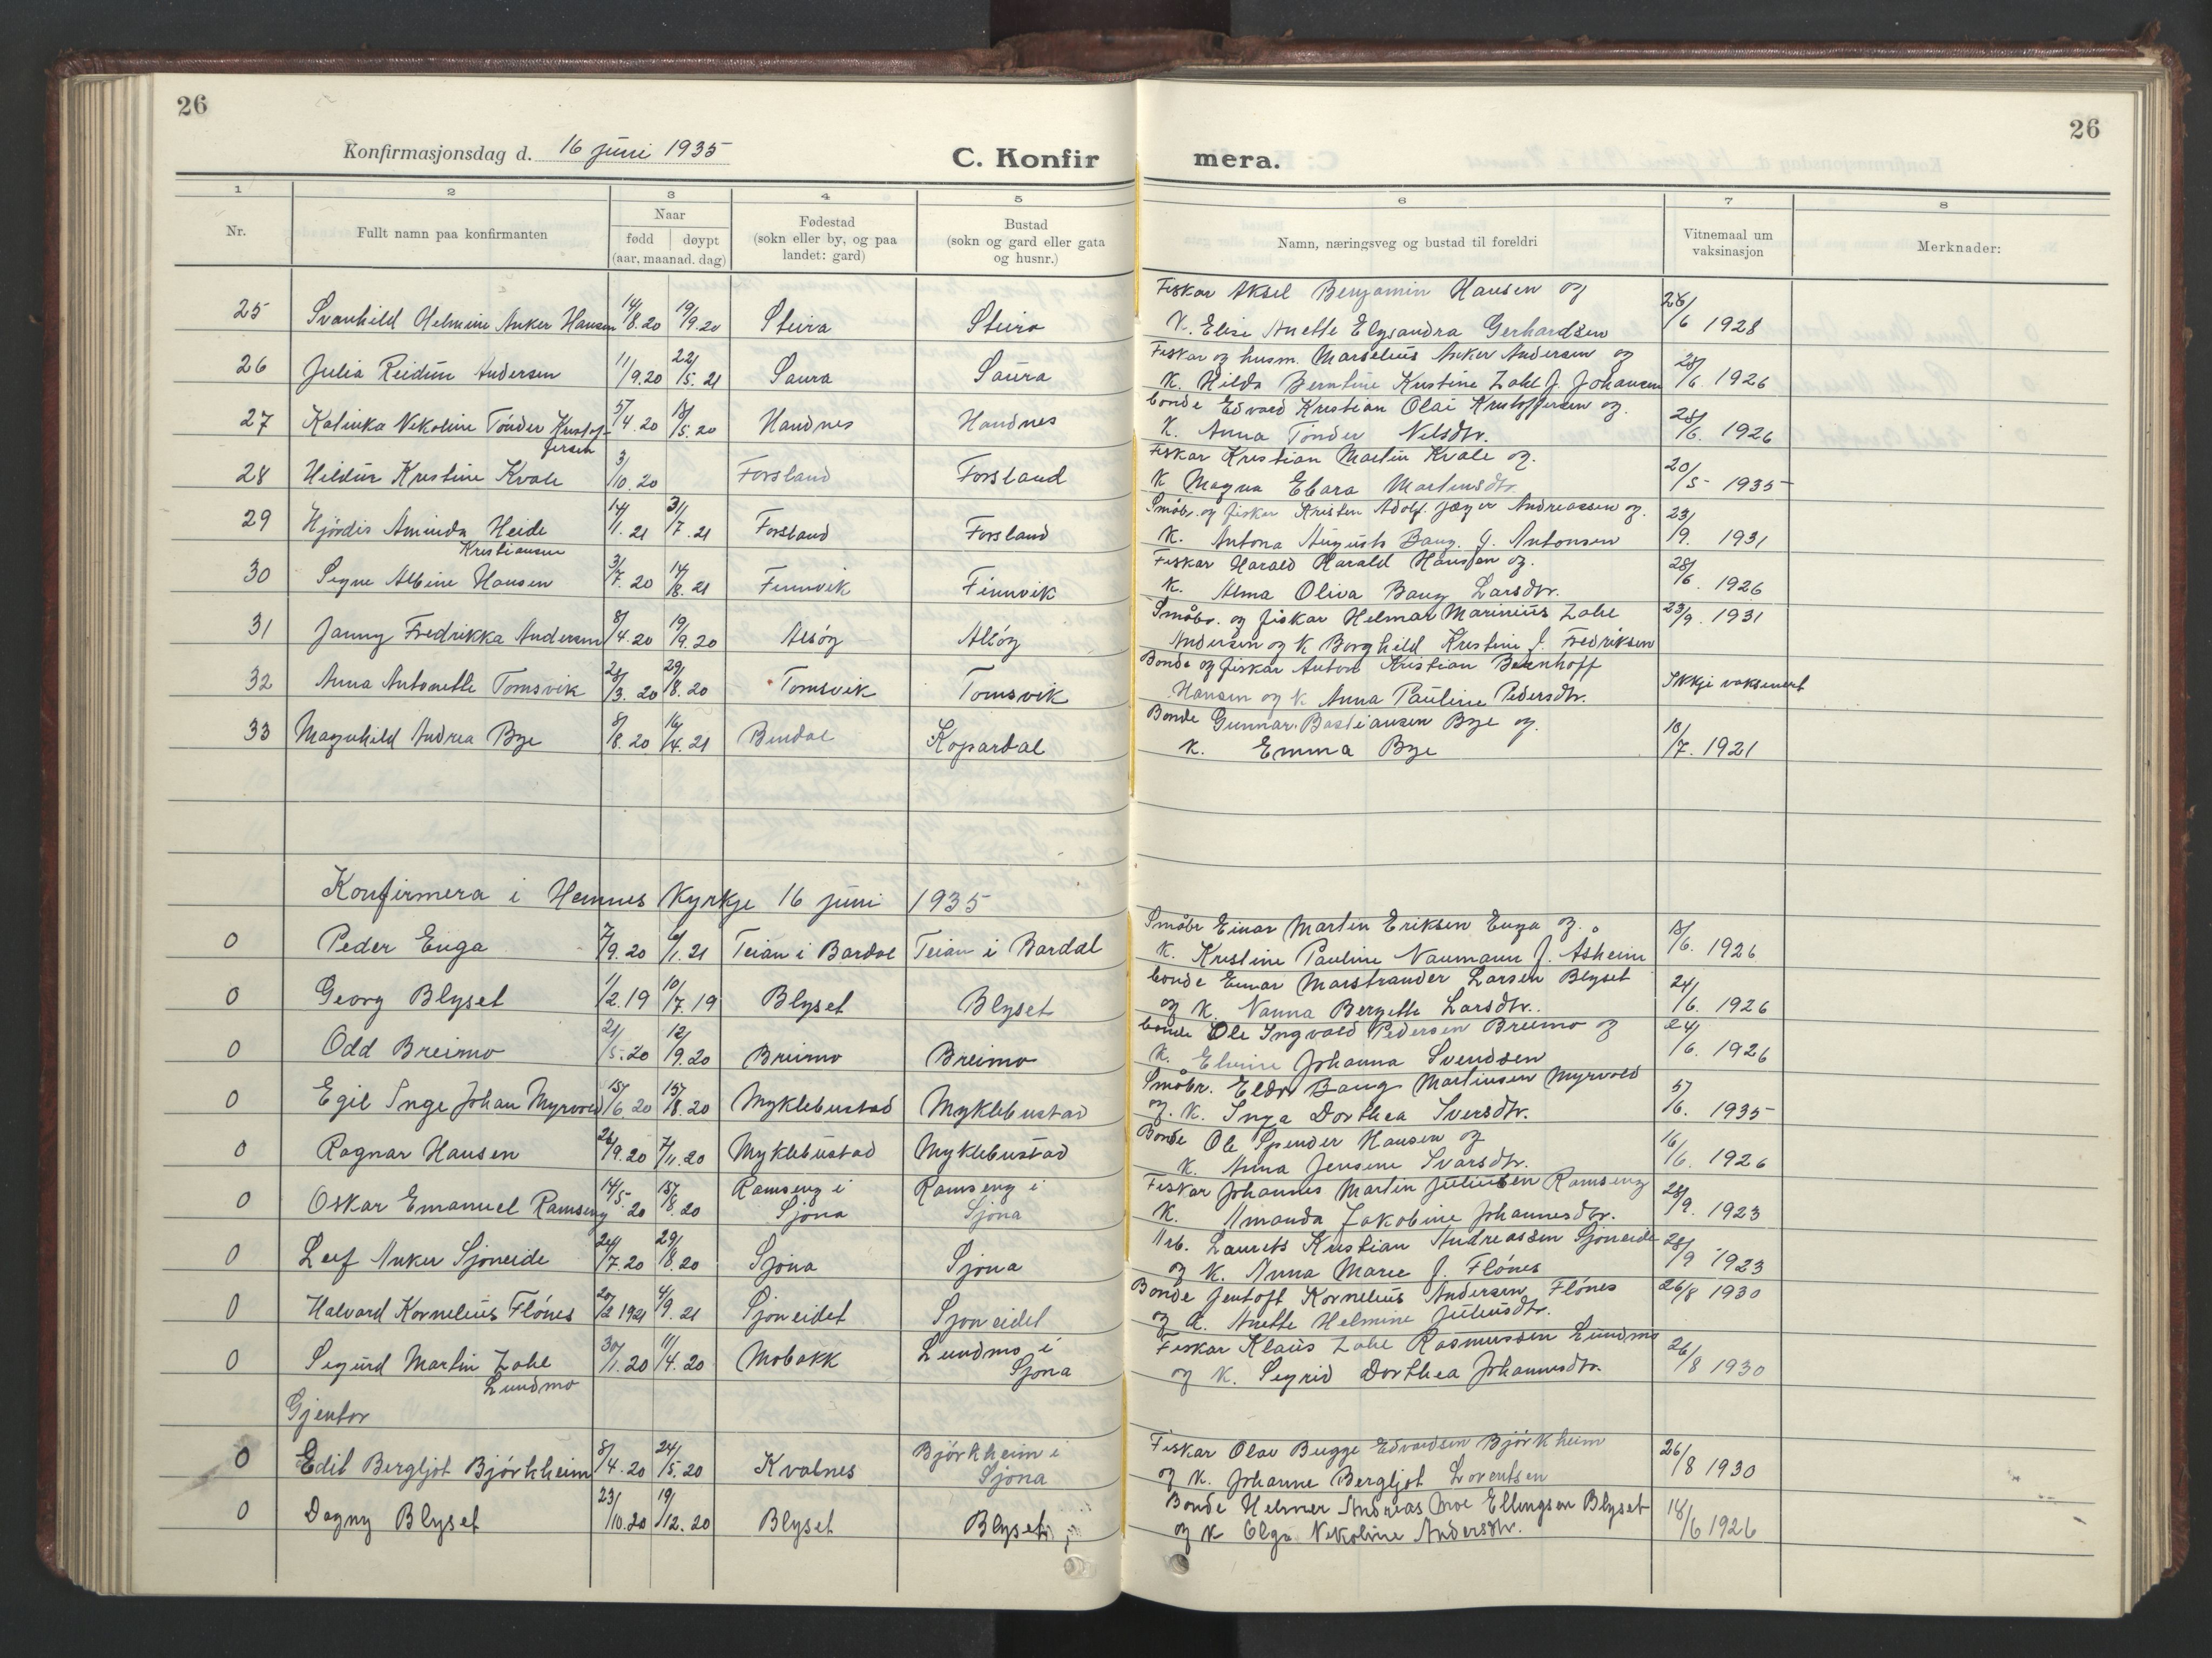 26
Konfirmasjonsdag d. 16 juni 1935
C. Konfir mera.
26
1 2 3 4 5 6 7 8
Nr. Fullt namn paa konfirmanten Naar fødd døypt (aar, maanad. dag) Fødestad (sokn eller by, og paa landet: gard) Bustad (sokn og gard eller gata og husnr.) Namn, næringsveg og bustad til foreldri Vitnemaal um vaksinasjon Merknader:
25 Svanhild Helmine Anker Hansen 14/8.20 19/9.20 Steira Steira Fiskar Aksel Benjamin Hansen og
K. Elise Anette Elysandra Gerhardsen 28/6 1928
26 Julia Reidun Andersen 11/9.20 22/5.21 Saura Saura Fiskar og husm. Marselius Anker Andersen og
K. Hilda Berntine Kristine Zahl f. Johansen 28/6 1926
27 Kalinka Nikoline Tønder Kristof- 5/4.20 18/5.20 Handnes Handnes bonde Edvard Kristian Olai Kristoffersen og.
fersen K. Anna Tønder Nilsdtr. 28/6. 1926
28 Hildur Kristine Kvale 3/10.20 Forsland Forsland Fiskar Kristian Martin Kvale og.
K Magna Elvara Martinsdtr. 20/5 1935
29 Hjördis Aminda Heide 14/1.21 31/7.21 Forsland Forsland Småbr. og fiskar Kristen Adolf Jæger Andreassen og.
Kristiansen K. Antona Augusta Bang f. Antonsen 23/9. 1931
30 Signe Albine Hansen 3/7.20 14/8.21 Finnvik Finnvik Fiskar Harald Harald Hansen og.
K. Alma Oliva Bang Larsdtr. 28/6. 1926
31 Janny Fredrikka Andersen 8/4.20 19/9.20 Alsöy Alsöy Småbr. og fiskar Helmar Marinius Zahl 23/9. 1931
Andersen og K Borghild Kristine f. Fredriksen
32 Anna Antonette Tomsvik 28/3.20 29/8.20 Tomsvik Tomsvik Bonde og fiskar Anton Kristian Bernhoff
Hansen og K Anna Pauline Pedersdtr. Ikkje vaksinert
33 Magnhild Andrea Bye 8/8.20 16/4.21 Bindal Kopardal Bonde Gunnar Bastiansen Bye og.
K. Emma Bye 18/7. 1921
Konfirmera i Hemnes Kyrkje 16 juni 1935
0 Peder Enga 7/9.20 6/1.21 Teian i Bardal Teian i Bardal Småbr Einar Martin Eriksen Enga og.
K. Kristine Pauline Naumann f. Åsheim 18/6. 1926
0 Georg Blyset 1/2.19 10/7.19 Blyset Blyset bonde Einar Marstrander Larsen Blyset
og K. Nanna Bergitte Larsdtr. 24/6. 1926
0 Odd Breimo 21/5.20 12/9.20 Breimo Breimo bonde Ole Ingvald Pedersen Breimo og
K. Elvine Johanna Svendsen 24/6. 1926
0 Egil Inge Johan Myrvold 15/6 20 15/8.20 Myklebustad Myklebustad Småbr. Eldor Bang Martinsen Myrvold
og. K. Inga Dorthea Iversdtr. 5/6. 1935
0 Ragnar Hansen 26/9.20 7/11.20 Myklebustad Myklebustad Bonde Ole Spender Hansen og
K. Anna Jensine Ivarsdtr. 16/6. 1926
0 Oskar Emanuel Ramseng 14/5 20 15/8.20 Ramseng i Sjona Ramseng i Sjona Fiskar Johannes Martin Juliusen Ramseng
K. Amanda Jakobine Johannesdtr. 28/9. 1923
0 Leif Anker Sjoneide 24/7.20 29/8.20 Sjona Sjona Arb. Laurits Kristian Andreassen Sjoneide
og K. Anna Marie f. Flönes 28/9 1923
0 Halvard Kornelius Flönes 20/2 1921 4/9.21 Sjoneidet Sjoneidet Bonde Jentoft Kornelius Andersen Flönes 26/8 1930
og K. Anette Helmine Juliusdtr.
0 Sigurd Martin Zahl 30/1.20 11/4.20 Mobakk Lundmo i Sjona Fiskar Klaus Zahl Rasmussen Lundmo
Lundmo og K. Sigrid Dorthea Johannesdtr. 26/8 1930
Gjentor
0 Edit Bergljot Björkheim 8/4.20 24/5.20 Kvalnes Björkheim i Sjona Fiskar Olav Bugge Edvardsen Björkheim
og K. Johanne Bergljot Lorentsen 26/8 1930
0 Dagny Blyset 23/10.20 19/12.20 Blyset Blyset Bonde Helmer Andreas Moe Ellingsen Blyset
og K Olga Nikoline Andersdtr. 18/6 1926